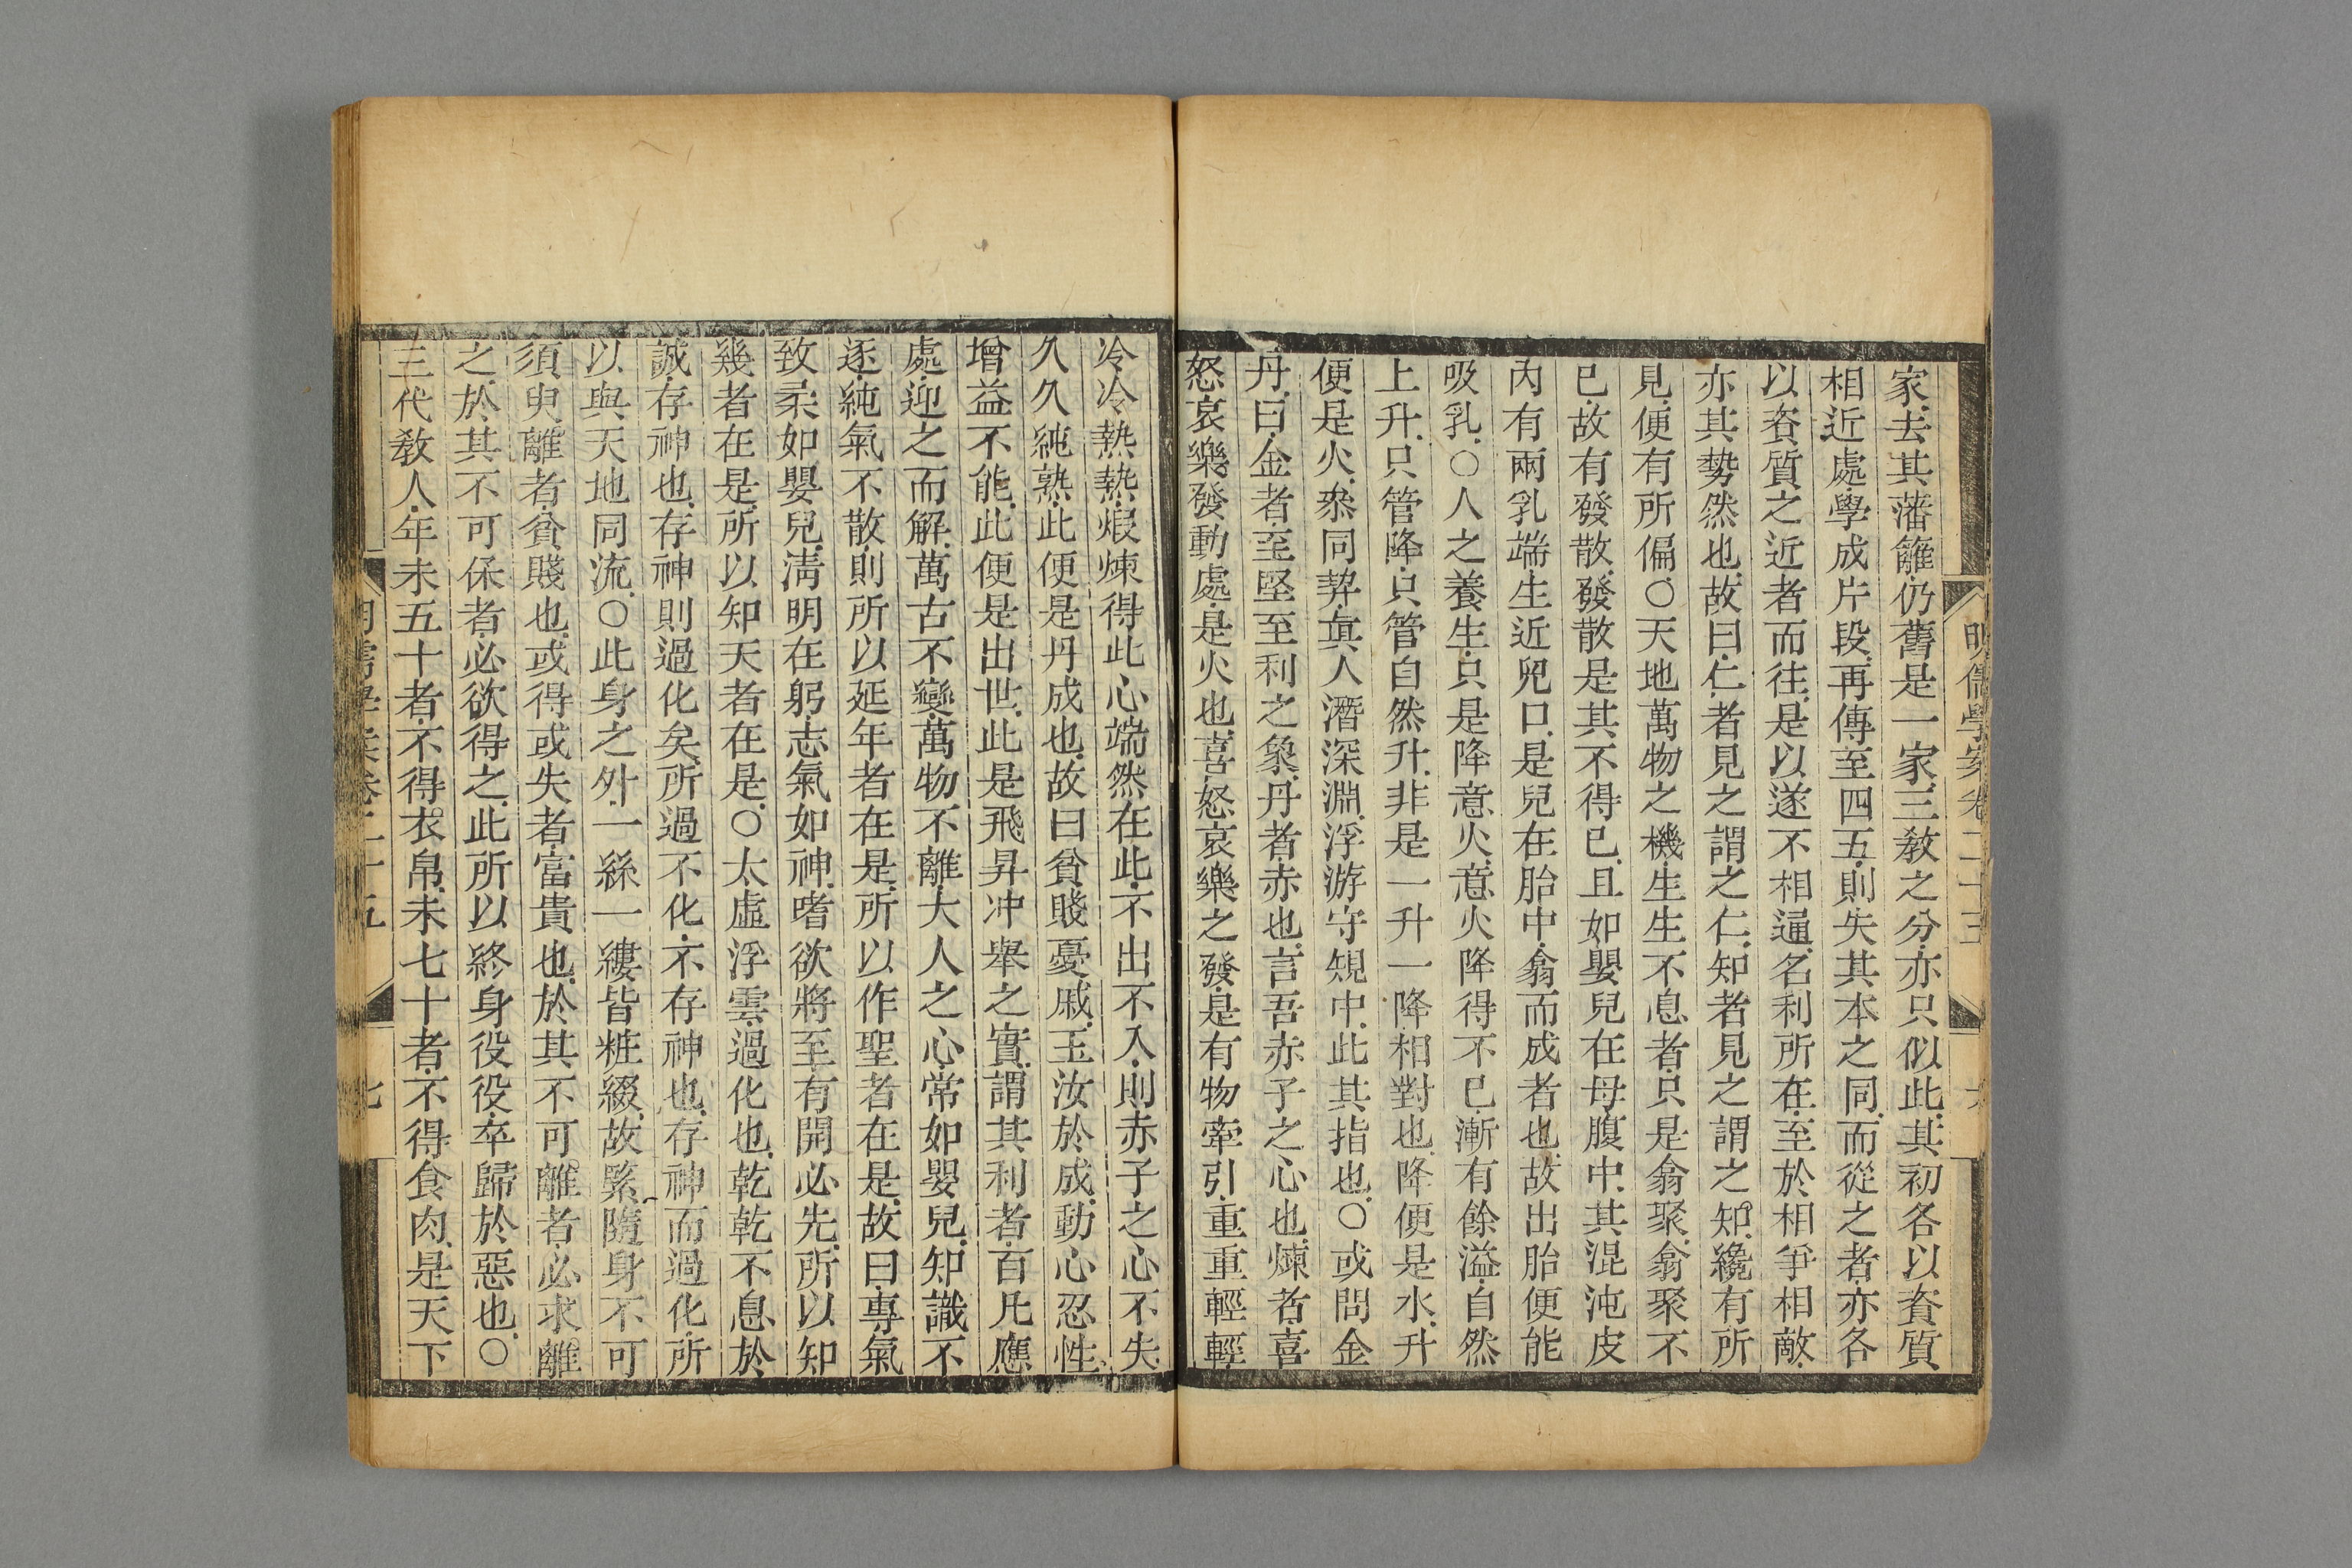 明儒學案卷二十五
六
家去其藩籬仍舊是一家三敎之分亦只似此其初各以資質
相近處學成片段再傳至四五則失其本之同而從之者亦各
以資質之近者而往是以遂不相通名利所在至於相爭相敵
亦其勢然也故曰仁者見之謂之仁知者見之謂之知纔有所
見便有所偏○天地萬物之機生生不息者只是翕聚翕聚不
已故有發散發散是其不得已且如嬰兒在母腹中其混沌皮
內有兩乳端生近兒口是兒在胎中翕而成者也故出胎便能
吸乳○人之養生只是降意火意火降得不已漸有餘溢自然
上升只管降只管自然升非是一升一降相對也降便是水升
便是火叅同契眞人潛深淵浮游守規中此其指也○或問金
丹曰金者至堅至利之象丹者赤也言吾赤子之心也煉者喜
怒哀樂發動處是火也喜怒哀樂之發是有物牽引重重輕輕
冷冷熱熱煅煉得此心端然在此不出不入則赤子之心不失
久久純熟此便是丹成也故曰貧賤憂戚玉汝於成動心忍性
增益不能此便是出世此是飛昇冲舉之實謂其利者百凡應
處迎之而解萬古不變萬物不離大人之心常如嬰兒知識不
逐純氣不散則所以延年者在是所以作聖者在是故曰專氣
致柔如嬰兒淸明在躬志氣如神嗜欲將至有開必先所以知
幾者在是所以知天者在是○太虛浮雲過化也乾乾不息於
誠存神也存神則過化矣所過不化不存神也存神而過化所
以與天地同流○此身之外一絲一縷皆粧綴故緊隨身不可
須臾離者貧賤也或得或失者富貴也於其不可離者必求離
之於其不可保者必欲得之此所以終身役役卒歸於惡也○
三代敎人年未五十者不得衣帛未七十者不得食肉是天下
明儒學案卷二十五
七